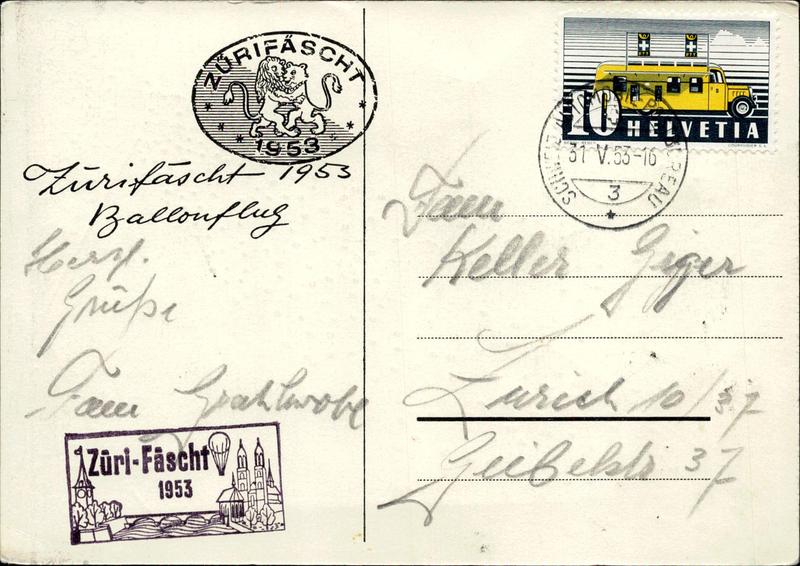 ZÜRIFÄSCHT
1953
Zürifäscht 1953
Ballonflug
Herzl.
Grüße
Fam
Züri-Fäscht
1953
10 HELVETIA
COURVOISIER S.A.
31 V.53-16
3
Fam
Keller Geiger
Zürich 10/37
Geibelstr 37